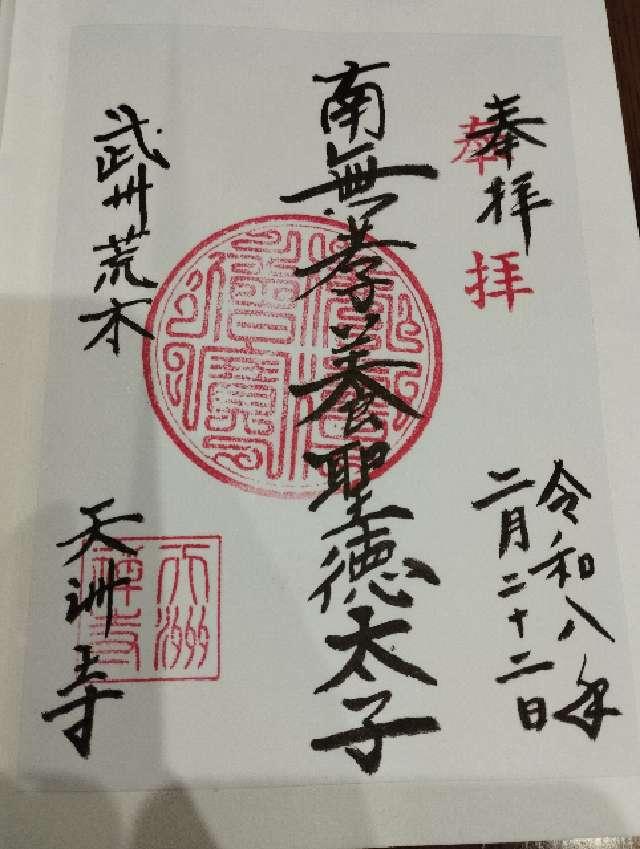 奉拝
奉拝
令和八年
二月二十二日
南無孝養聖徳太子
武州荒木
天洲寺
天洲
禅寺